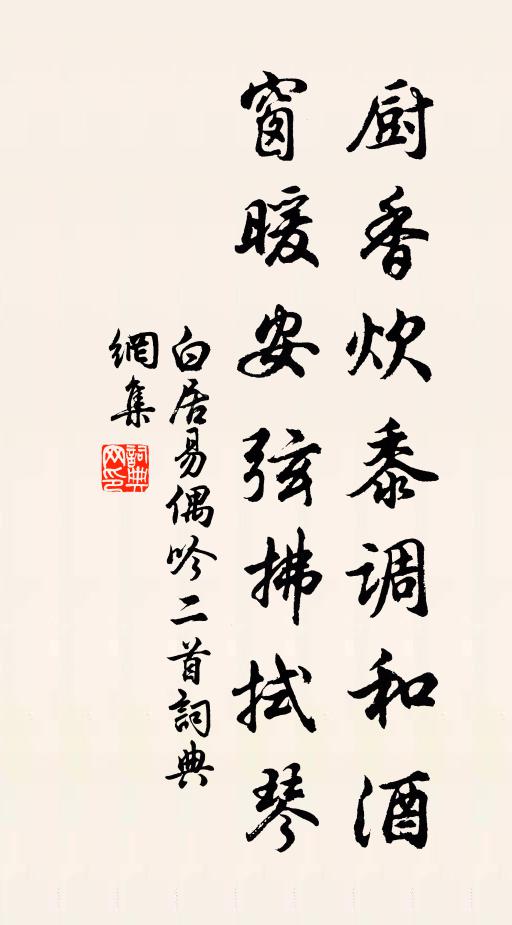 厨香炊黍调和酒
窗暖安弦拂拭琴
白居易偶吟二首詞典
網集
詞典
网印